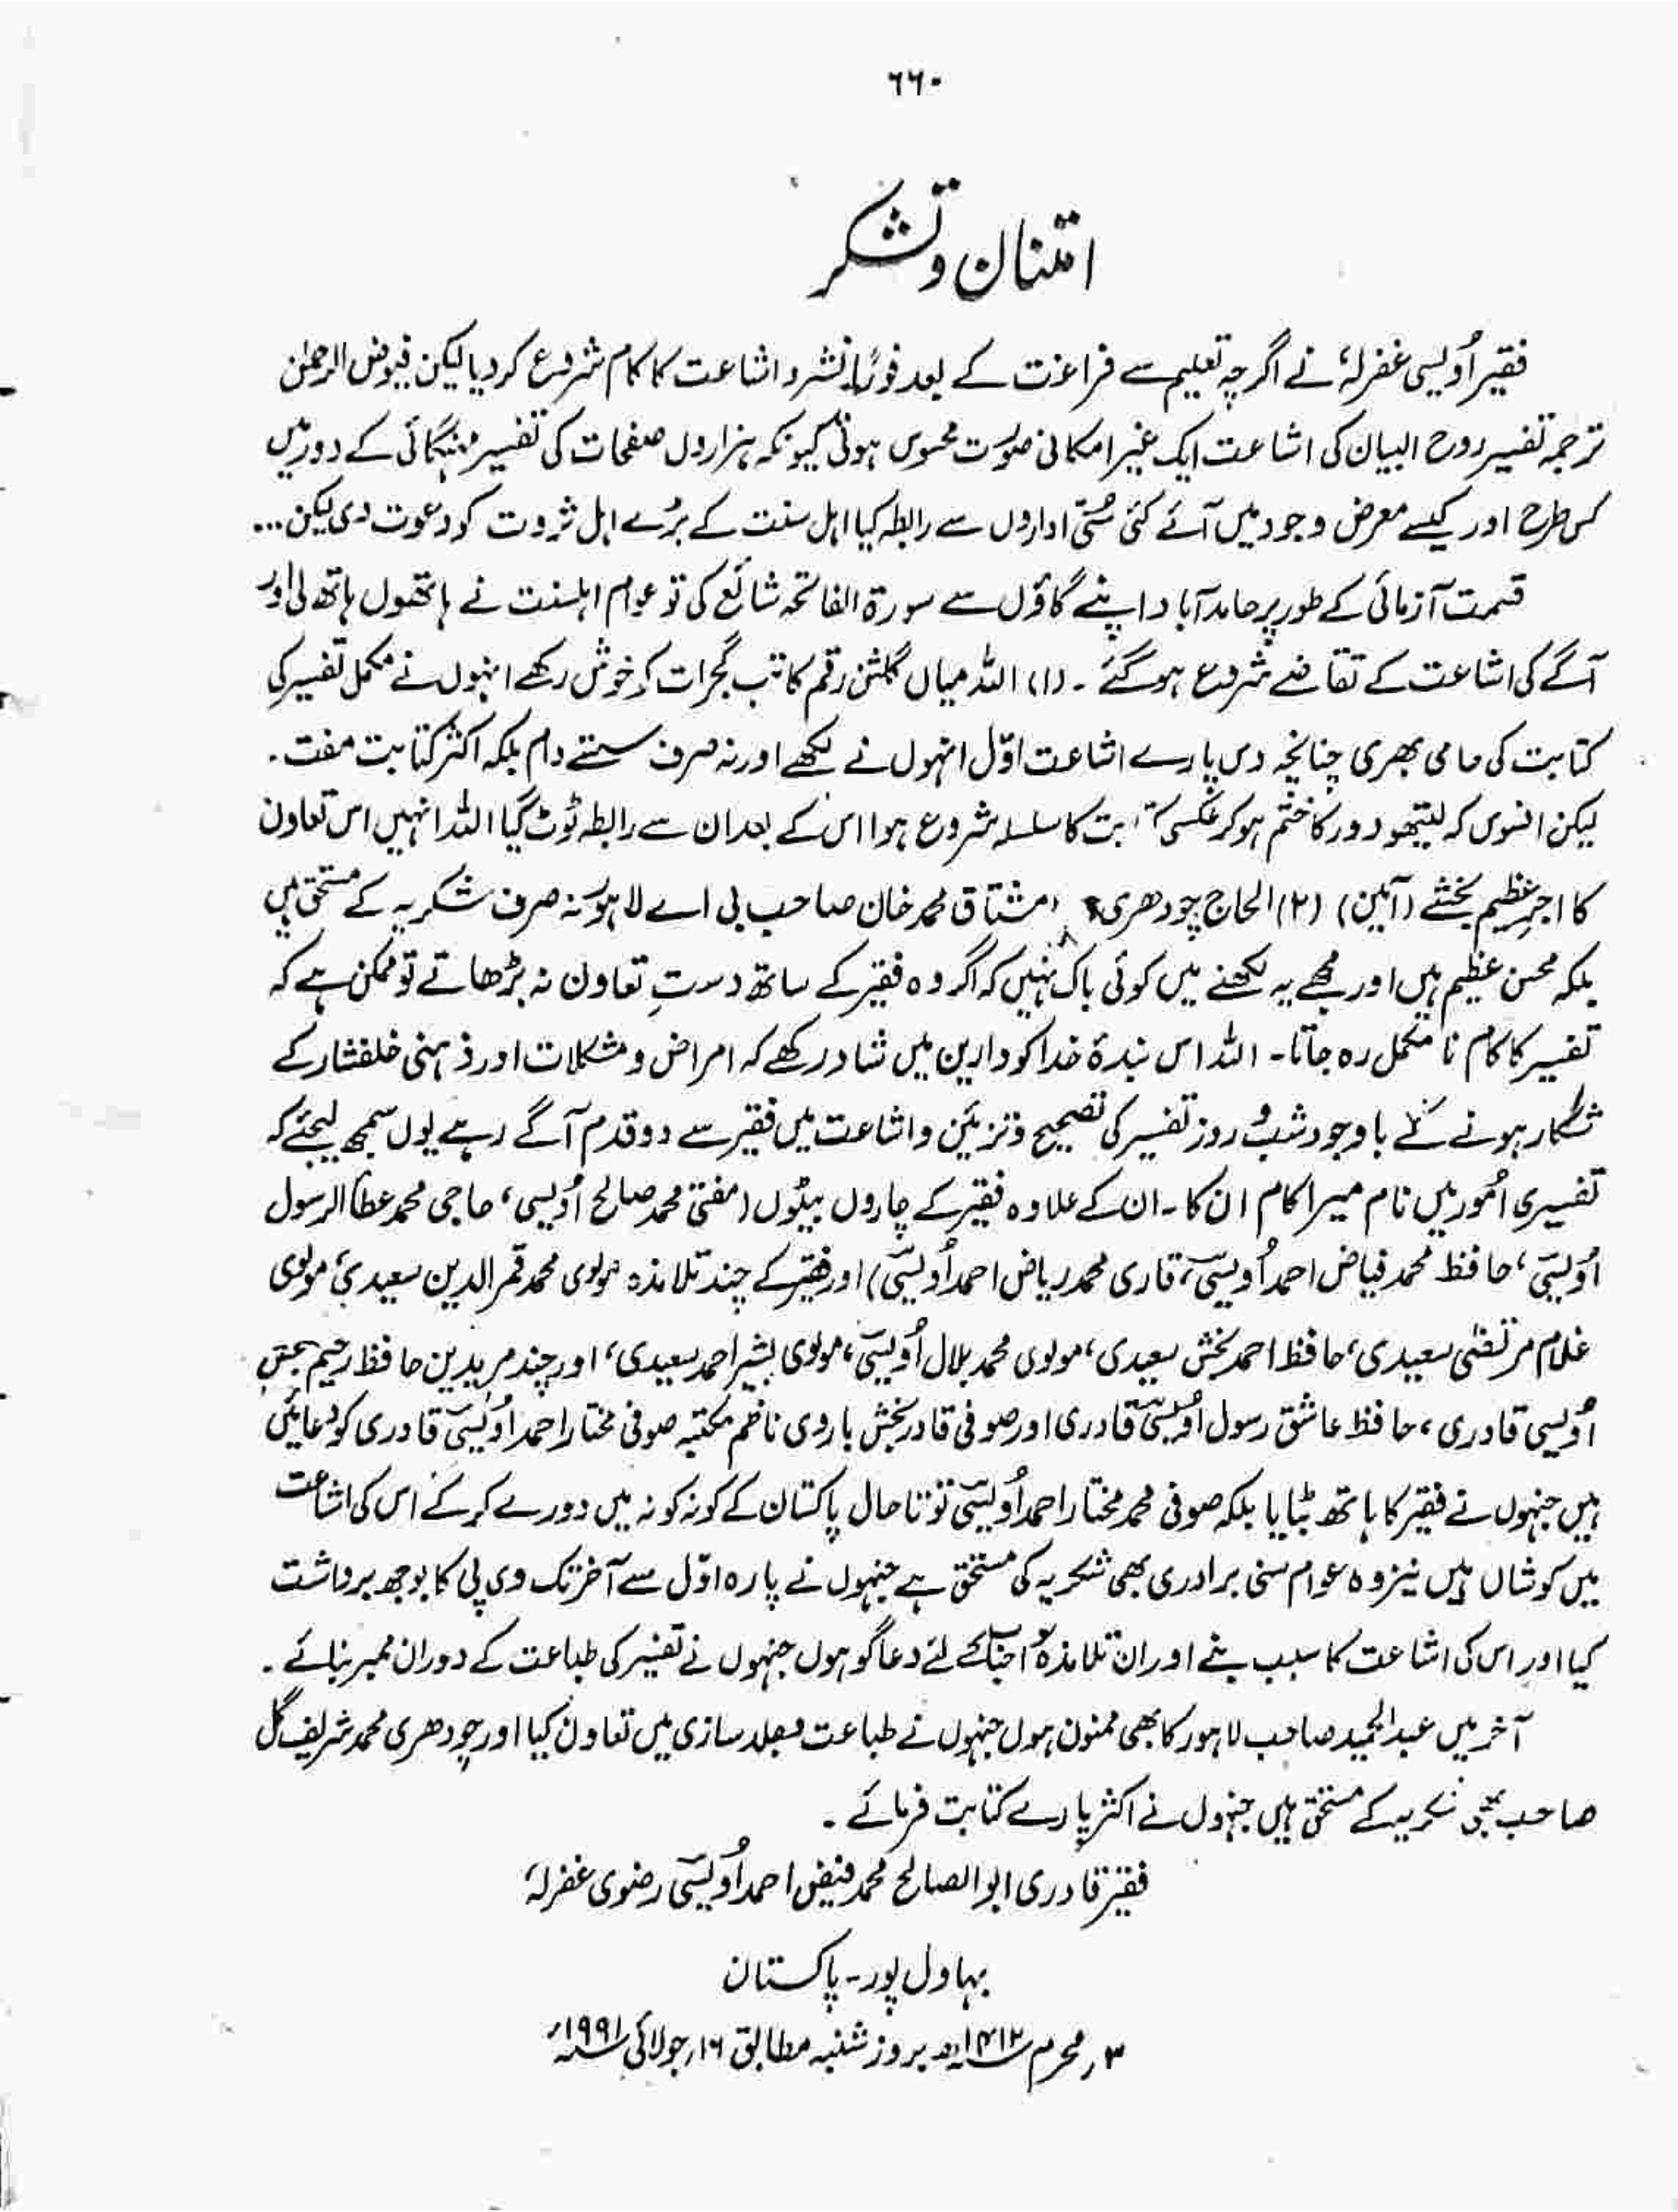 ٦٦٠
امتنان و تشکر
فقیر اُویسی غفرلہٗ نے اگرچہ تعلیم سے فراغت کے بعد فورًا نشر و اشاعت کا کام شروع کر دیا لیکن فیوض الرحمٰن
ترجمہ تفسیر روح البیان کی اشاعت ایک غیر امکانی صورت محسوس ہوئی کیونکہ ہزاروں صفحات کی تفسیر مہنگائی کے دور میں
کس طرح اور کیسے معرض وجود میں آئے کئی سُنّی اداروں سے رابطہ کیا اہل سنت کے بڑے اہل ثروت کو دعوت دی لیکن...
قسمت آزمائی کے طور پر حامد آباد اپنے گاؤں سے سورۃ الفاتحہ شائع کی تو عوام اہلسنت نے ہاتھوں ہاتھ لی اور
آگے کی اشاعت کے تقاضے شروع ہو گئے ۔ (١) اللہ میاں گلشن رقم کاتب گجرات کو خوش رکھے انہوں نے مکمل تفسیر کی
کتابت کی حامی بھری چنانچہ دس پارے اشاعت اوّل انہوں نے لکھے اور نہ صرف سستے دام بلکہ اکثر کتابت مفت ۔
لیکن افسوس کہ لیتھو دور کا ختم ہو کر عکسی کتابت کا سلسلہ شروع ہوا اس کے بعد ان سے رابطہ ٹوٹ گیا اللہ انہیں اس تعاون
کا اجرِ عظیم بخشے (آمین) (٢) الحاج چودھری مشتاق محمد خان صاحب بی اے لاہور نہ صرف شکریہ کے مستحق ہیں
بلکہ محسن عظیم ہیں اور مجھے یہ لکھنے میں کوئی باک نہیں کہ اگر وہ فقیر کے ساتھ دستِ تعاون نہ بڑھاتے تو ممکن ہے کہ
تفسیر کا کام نا مکمل رہ جاتا ۔ اللہ اس بندۂ خدا کو دارین میں شاد رکھے کہ امراض و مشکلات اور ذہنی خلفشار کے
شکار ہونے کے باوجود شب و روز تفسیر کی تصحیح و تزئین و اشاعت میں فقیر سے دو قدم آگے رہے یوں سمجھ لیجئے کہ
تفسیری اُمور میں نام میرا کام ان کا ۔ ان کے علاوہ فقیر کے چاروں بیٹوں (مفتی محمد صالح اُویسی، حاجی محمد عطاء الرسول
اُویسی، حافظ محمد فیاض احمد اُویسی، قاری محمد ریاض احمد اُویسی) اور فقیر کے چند تلامذہ مولوی محمد قمر الدین سعیدی، مولوی
غلام مرتضٰی سعیدی، حافظ احمد بخش سعیدی، مولوی محمد بلال اُویسی، مولوی بشیر احمد سعیدی، اور چند مریدین حافظ رحیم بخش
اُویسی قادری، حافظ عاشق رسول اُویسی قادری اور صوفی قادر بخش باروی ناظم مکتبہ صوفی مختار احمد اُویسی قادری کو دعائیں
ہیں جنہوں نے فقیر کا ہاتھ بٹایا بلکہ صوفی محمد مختار احمد اُویسی تو تا حال پاکستان کے کونہ کونہ میں دورے کر کے اس کی اشاعت
میں کوشاں ہیں نیز وہ عوام سنی برادری بھی شکریہ کی مستحق ہے جنہوں نے پارہ اوّل سے آخر تک وی پی کا بوجھ برداشت
کیا اور اس کی اشاعت کا سبب بنے اور ان تلامذہ و احباب کے لئے دعا گو ہوں جنہوں نے تفسیر کی طباعت کے دوران ممبر بنائے ۔
آخر میں عبد الحمید صاحب لاہور کا بھی ممنون ہوں جنہوں نے طباعت و جلد سازی میں تعاون کیا اور چودھری محمد شریف گل
صاحب بھی شکریہ کے مستحق ہیں جنہوں نے اکثر پارے کتابت فرمائے ۔
فقیر قادری ابو الصالح محمد فیض احمد اُویسی رضوی غفرلہٗ
بہاول پور ۔ پاکستان
٣ محرم ١٤١٢ھ بروز شنبہ مطابق ١٦ جولائی ١٩٩١ء